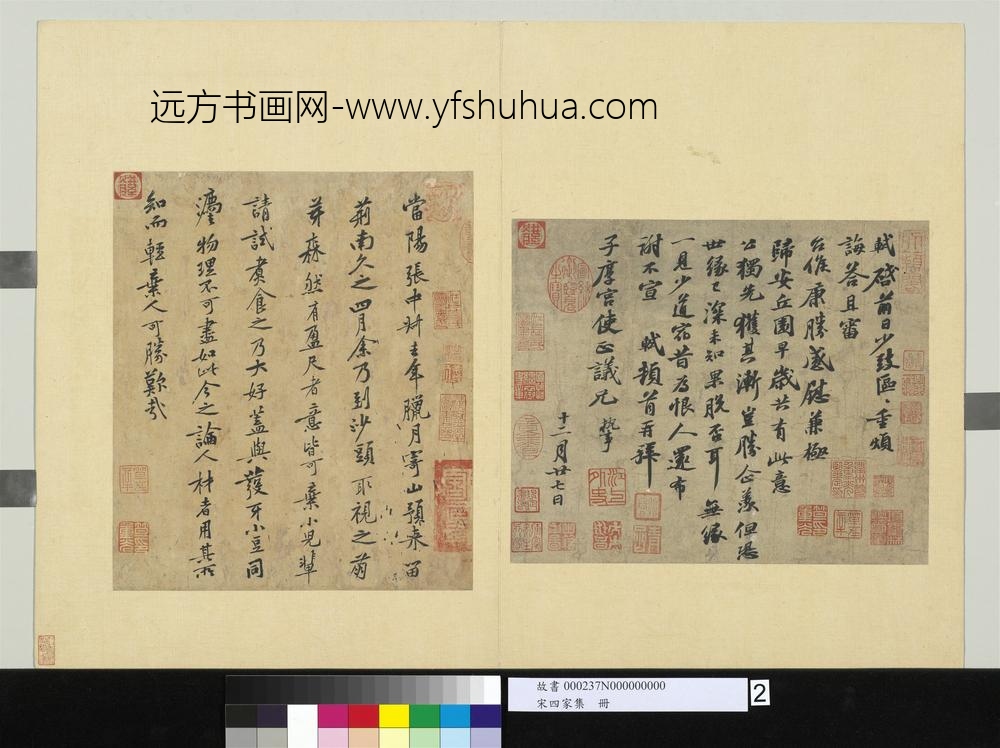 远方书画网-www.yfshuhua.com
軾啓前日少致區〻重煩
誨答且審
台候康勝感慰兼極
歸安丘園早歲共有此意
公獨先獲其漸豈勝企羨但恐
世緣已深未知果脫否耳 無緣
一見少道宿昔為恨人還布
謝不宣 軾頓首再拜
子厚宮使正議兄 執事
十二月廿七日
當陽張中叔去年臘月寄山預來留
荊南久之四月余乃到沙頭取視之萌
芽森然有盈尺者意皆可棄小兒輩
請試煮食之乃大好蓋與發牙小豆同
灋物理不可盡如此今之論人材者用其所
知而輕棄人可勝歎哉
故書 000237N000000000
宋四家集 冊
2